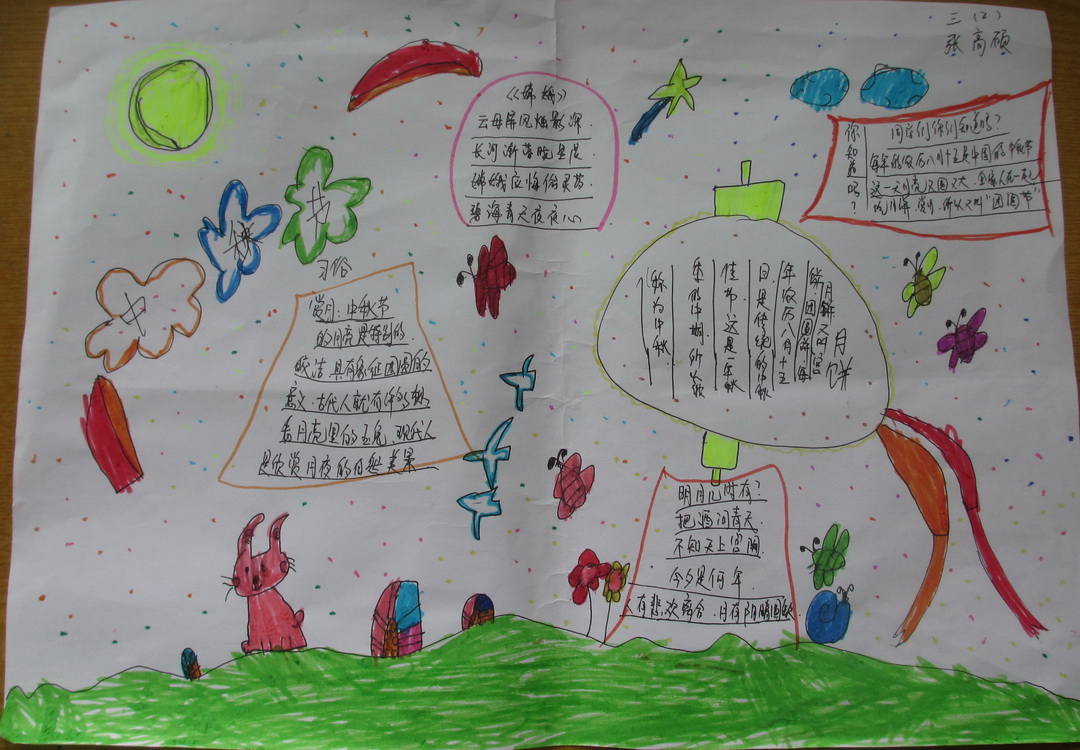 三（2）
张高硕
《嫦娥》
云母屏风烛影深
长河渐落晓星沉
嫦娥应悔偷灵药
碧海青天夜夜心
你知道吗？
同学们你们知道吗？
每年的农历八月十五是中国的中秋节
这一天月亮又圆又大，全家人在一起
吃月饼 赏月，所以又叫"团圆节"
中
秋
节
习俗
赏月：中秋节
的月亮是特别的
皎洁 具有象征团圆的
意义，古代人就有
看月亮里的玉兔，现代人
是以赏月夜的
月饼
月饼又叫宫
饼 团圆饼 每
年农历八月十五
日，是传统的中秋
佳节，这是一年秋
季的中期，所以被
称为中秋
明月几时有？
把酒问青天。
不知天上宫阙
今夕是何年
人有悲欢离合，月有阴晴圆缺